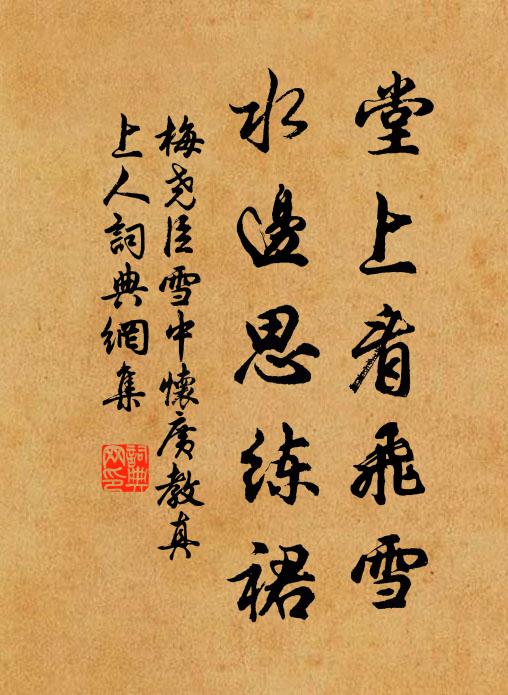 堂上看飛雪
水邊思練裙
梅堯臣雪中懷廣教真
上人詞典網集
詞典網印